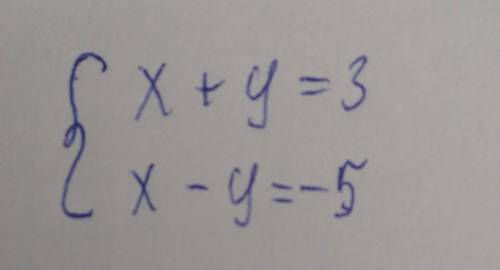 x + y = 3
x - y = -5